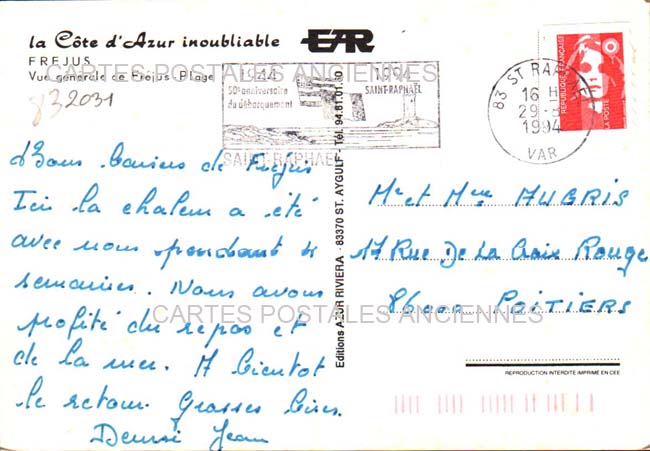 la Côte d'Azur inoubliable
EAR
FREJUS
Vue générale de Fréjus Plage
CARTES POSTALES ANCIENNES
83 2031
1944 1994
50e anniversaire
du débarquement
SAINT-RAPHAËL
SAINT-RAPHAEL
83 ST RAPHAEL
16 H
29-8
1994
VAR
REPUBLIQUE FRANÇAISE
LA POSTE
Bons baisers de Fréjus
Ici la chaleur a été
avec nous pendant 4
semaines. Nous avons
profité du repos et
de la mer. A bientôt
le retour. Grosses bises
Jean
Editions AZUR RIVIERA - 83370 ST. AYGULF - Tél. 94.81.01.
Mr et Mme AUGRIS
17 Rue De La Croix Rouge
86000 POITIERS
CARTES POSTALES ANCIENNES
REPRODUCTION INTERDITE IMPRIMÉ EN CEE